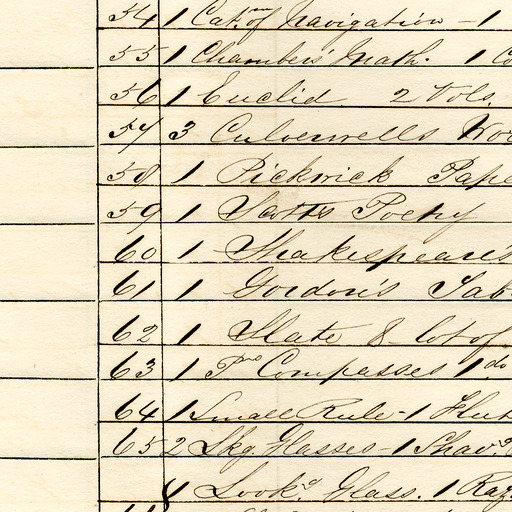 54 1 Cat. of Navigation - 1
55 1 Chambers' Math. 1 Co
56 1 Euclid 2 Vols.
57 3 Culverwells Wor
58 1 Pickwick Pape
59 1 Scotts Poetry
60 1 Shakespeare's
61 1 Gordon's Tab
62 1 Slate & lot of
63 1 Pr. Compasses 1 do
64 1 Small Rule - 1 Flut
65 2 Lkg. Glasses - 1 Shav.g
1 Look.g Glass. 1 Raz